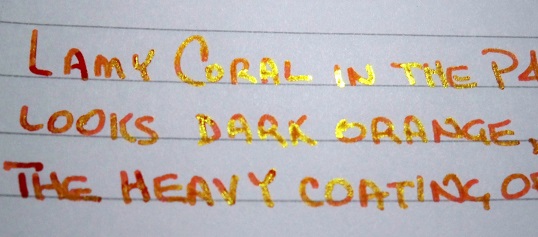 LAMY CORAL IN THE
LOOKS DARK ORANGE,
THE HEAVY COATING